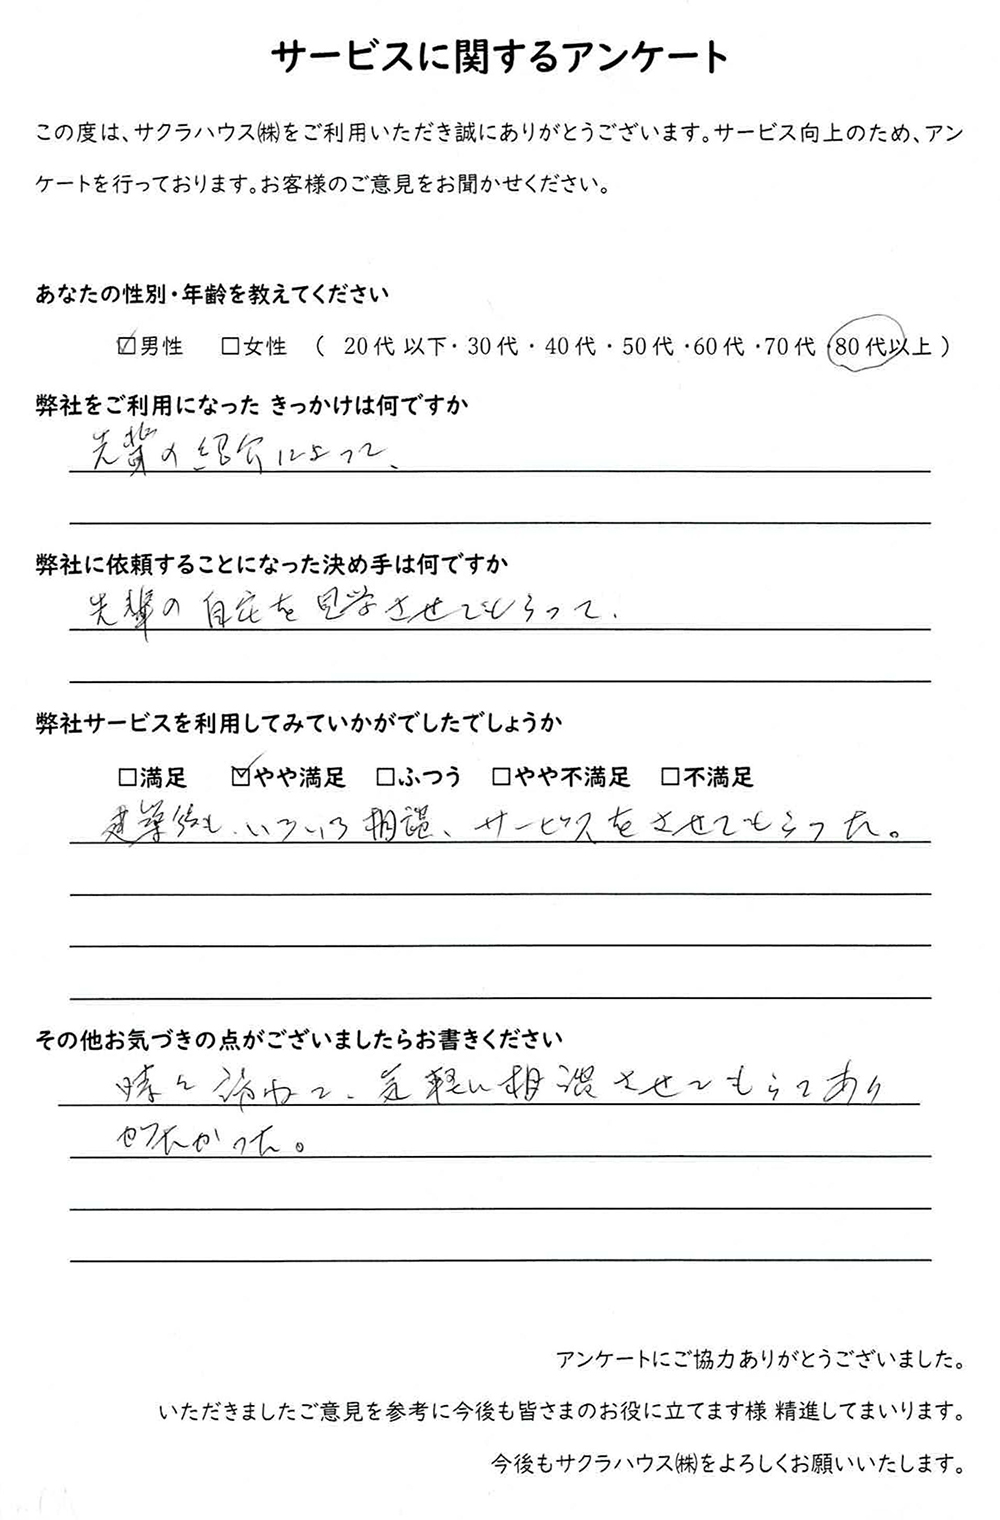 サービスに関するアンケート
この度は、サクラハウス㈱をご利用いただき誠にありがとうございます。サービス向上のため、アン
ケートを行っております。お客様のご意見をお聞かせください。
あなたの性別・年齢を教えてください
☑男性 □女性 ( 20代以下・30代・40代・50代・60代・70代・80代以上 )
弊社をご利用になった きっかけは何ですか
先輩の紹介によって、
弊社に依頼することになった決め手は何ですか
先輩の自宅を見学させてもらって.
弊社サービスを利用してみていかがでしたでしょうか
□満足 ☑やや満足 □ふつう □やや不満足 □不満足
建築後も、いろいろ相談、サービスをさせてもらった。
その他お気づきの点がございましたらお書きください
時々訪ねて、気軽に相談させてもらってあり
がたかった。
アンケートにご協力ありがとうございました。
いただきましたご意見を参考に今後も皆さまのお役に立てます様 精進してまいります。
今後もサクラハウス㈱をよろしくお願いいたします。